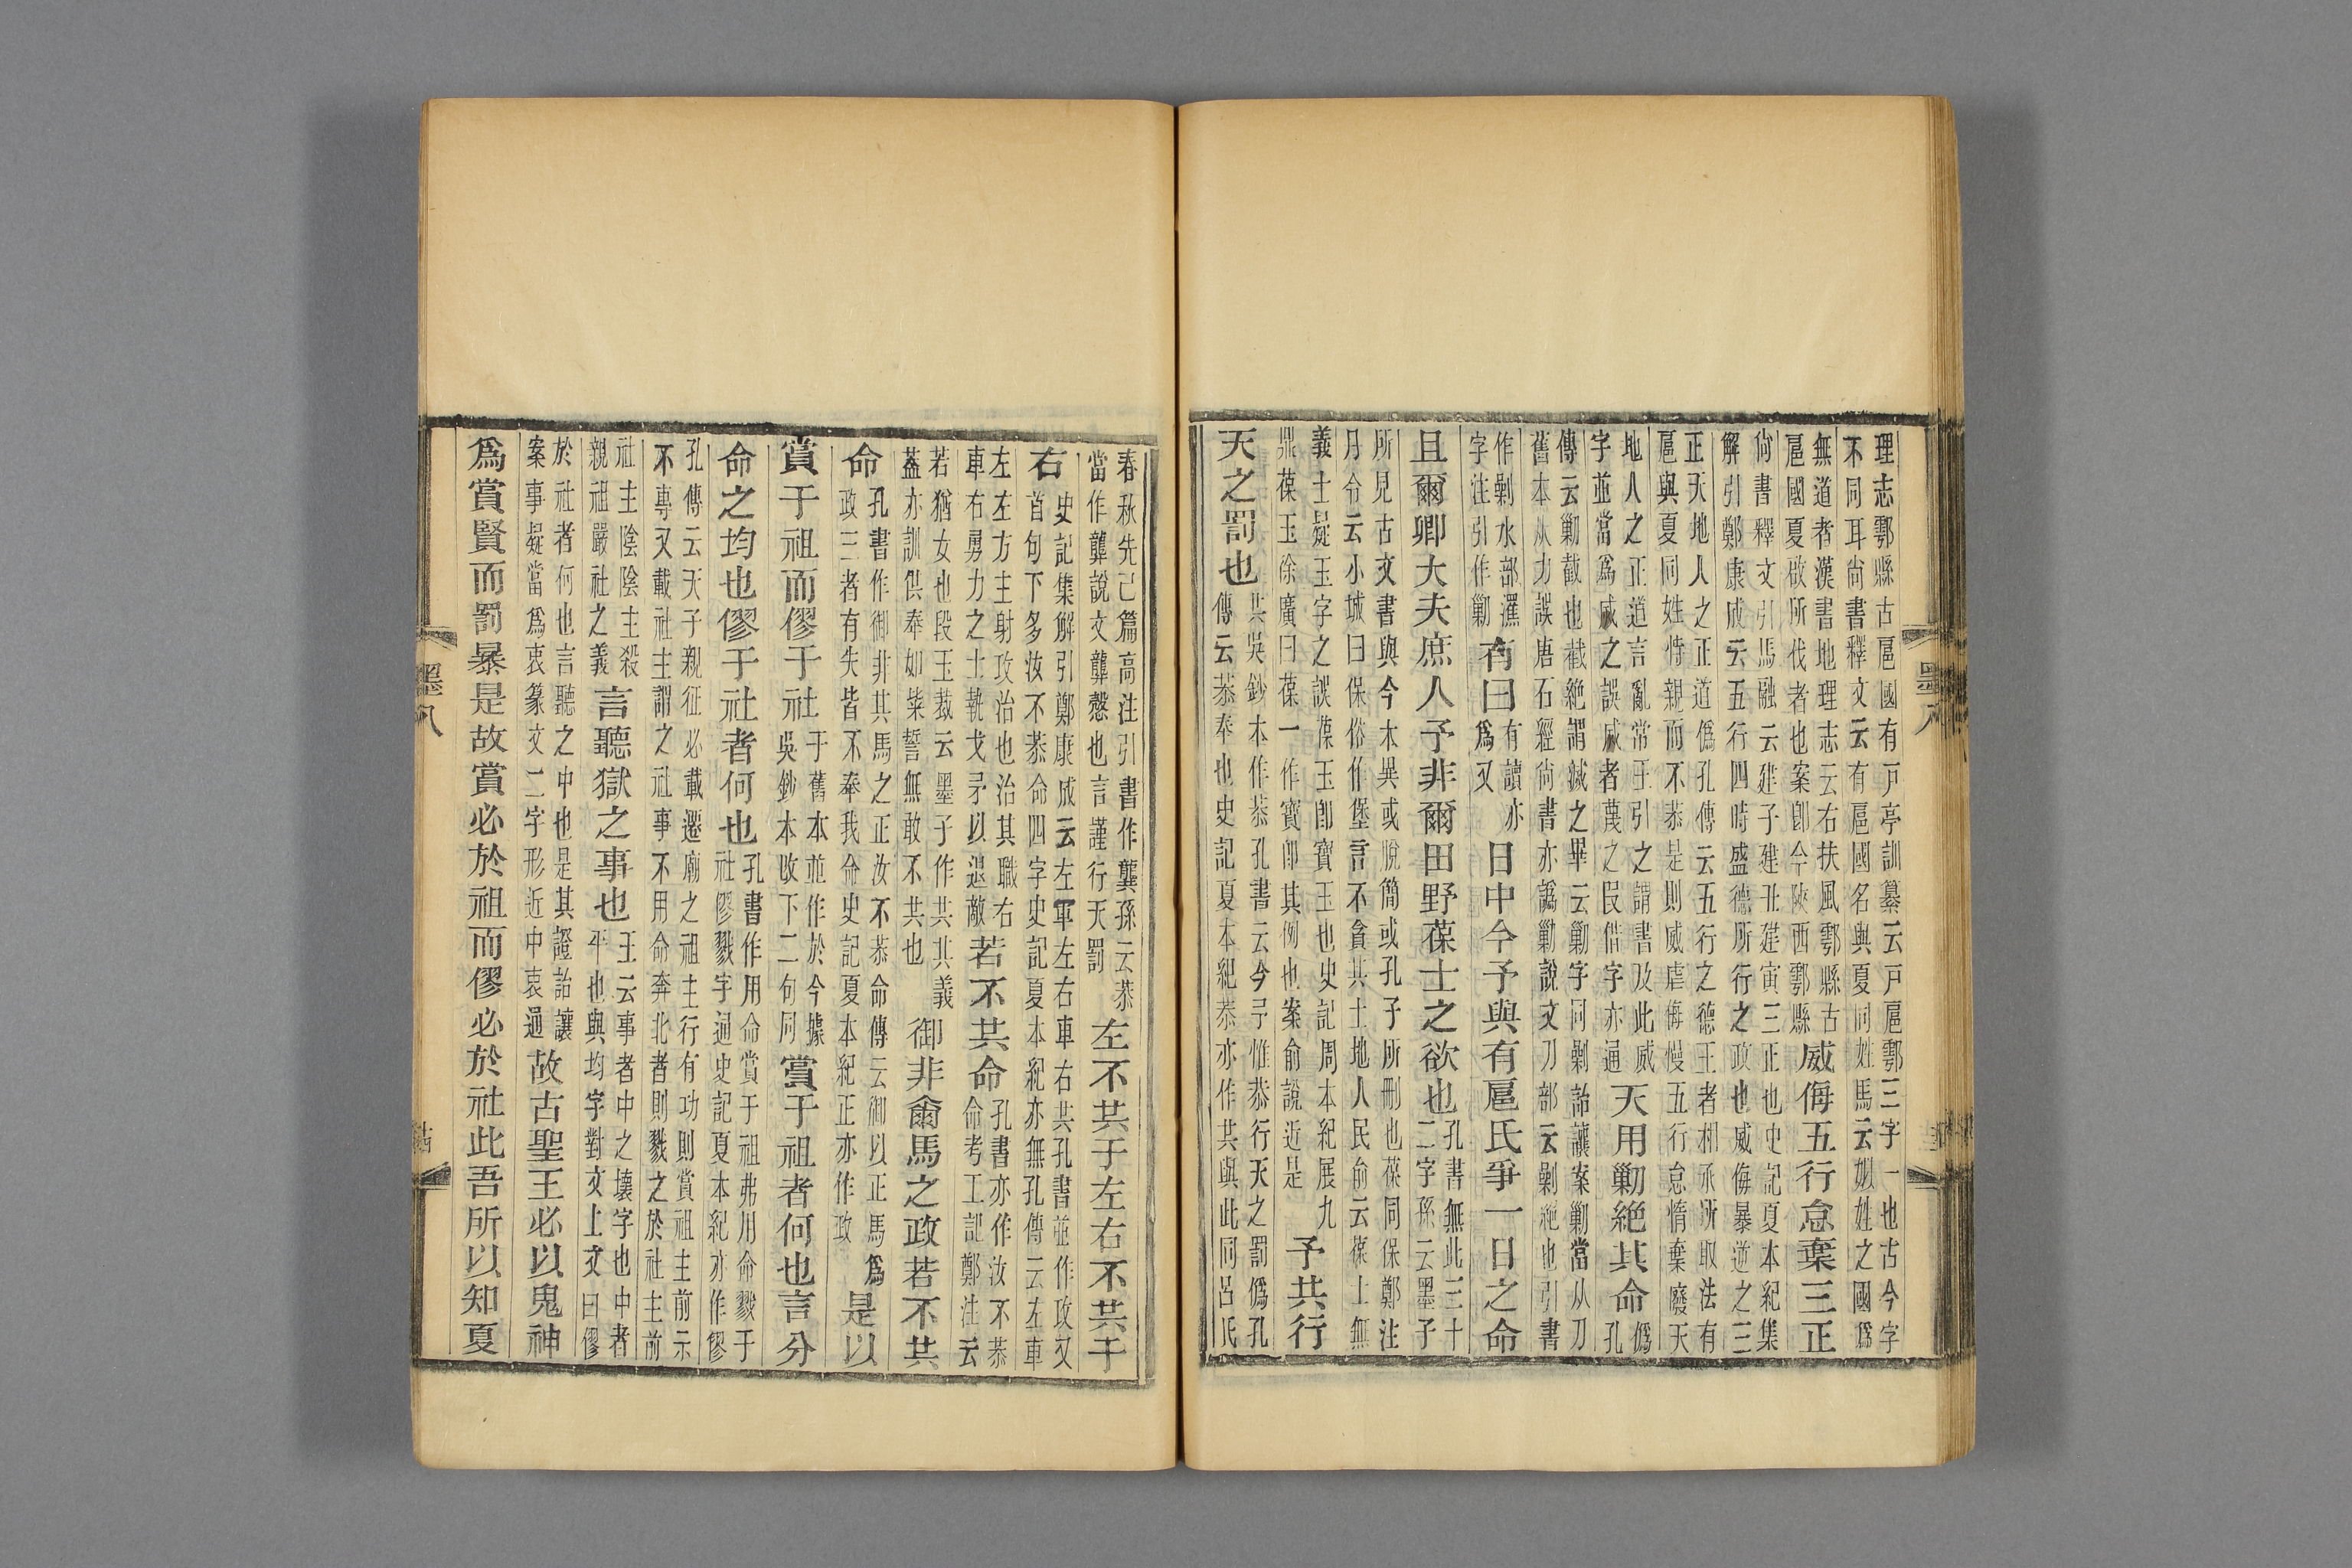 理志鄠縣古扈國有戸亭訓纂云戸扈鄠三字一也古今字
不同耳尙書釋文云有扈國名與夏同姓馬云姒姓之國爲
無道者漢書地理志云右扶風鄠縣古
扈國夏啟所伐者也案卽今陝西鄠縣
威侮五行怠棄三正
尙書釋文引馬融云建子建丑建寅三正也史記夏本紀集
解引鄭康成云五行四時盛德所行之政也威侮暴逆之三
正天地人之正道僞孔傳云五行之德王者相承所取法有
扈與夏同姓恃親而不恭是則威虐侮慢五行怠惰棄廢天
地人之正道言亂常王引之謂書及此威
字並當爲烕之誤烕者蔑之叚借字亦通
天用勦絶其命
僞
孔
傳云勦截也截絶謂滅之畢云勦字同剿詒讓案勦當从刀
舊本从力誤唐石經尙書亦譌勦說文刀部云剿絶也引書
作剿水部灑
字注引作勦
有曰
有讀亦
爲又
日中今予與有扈氏爭一日之命
且爾卿大夫庶人予非爾田野葆士之欲也
孔書無此三十
二字孫云墨子
所見古文書與今本異或脫簡或孔子所刪也葆同保鄭注
月令云小城曰保俗作堡言不貪其土地人民俞云葆士無
義士疑玉字之誤葆玉卽寶玉也史記周本紀展九
鼎葆玉徐廣曰葆一作寶卽其例也案俞說近是
予共行
天之罰也
共吳鈔本作恭孔書云今予惟恭行天之罰僞孔
傳云恭奉也史記夏本紀恭亦作共與此同呂氏
春秋先己篇高注引書作龔孫云恭
當作龔說文龔慤也言謹行天罰
左不共于左右不共于
右
史記集解引鄭康成云左車左右車右共孔書並作攻又
首句下多汝不恭命四字史記夏本紀亦無孔傳云左車
左左方主射攻治也治其職右
車右勇力之士執戈矛以退敵
若不共命
孔書亦作汝不恭
命考工記鄭注云
若猶女也段玉裁云墨子作共其義
蓋亦訓供奉如粊誓無敢不共也
御非爾馬之政若不共
命
孔書作御非其馬之正汝不恭命傳云御以正馬爲
政三者有失皆不奉我命史記夏本紀正亦作政
是以
賞于祖而僇于社
于舊本並作於今據
吳鈔本改下二句同
賞于祖者何也言分
命之均也僇于社者何也
孔書作用命賞于祖弗用命戮于
社僇戮字通史記夏本紀亦作僇
孔傳云天子親征必載遷廟之祖主行有功則賞祖主前示
不專又載社主謂之社事不用命奔北者則戮之於社主前
社主陰陰主殺
親祖嚴社之義
言聽獄之事也
王云事者中之壞字也中者
平也與均字對文上文曰僇
於社者何也言聽之中也是其證詒讓
案事疑當爲衷篆文二字形近中衷通
故古聖王必以鬼神
爲賞賢而罰暴是故賞必於祖而僇必於社此吾所以知夏
墨八